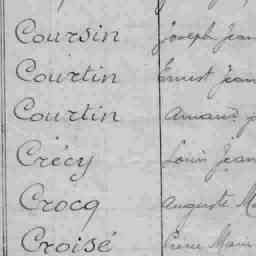 Coursin Joseph Jean
Courtin Ernest Jean
Courtin Amand
Crécy Louis Jean
Crocq Auguste
Croisé Pierre Marie